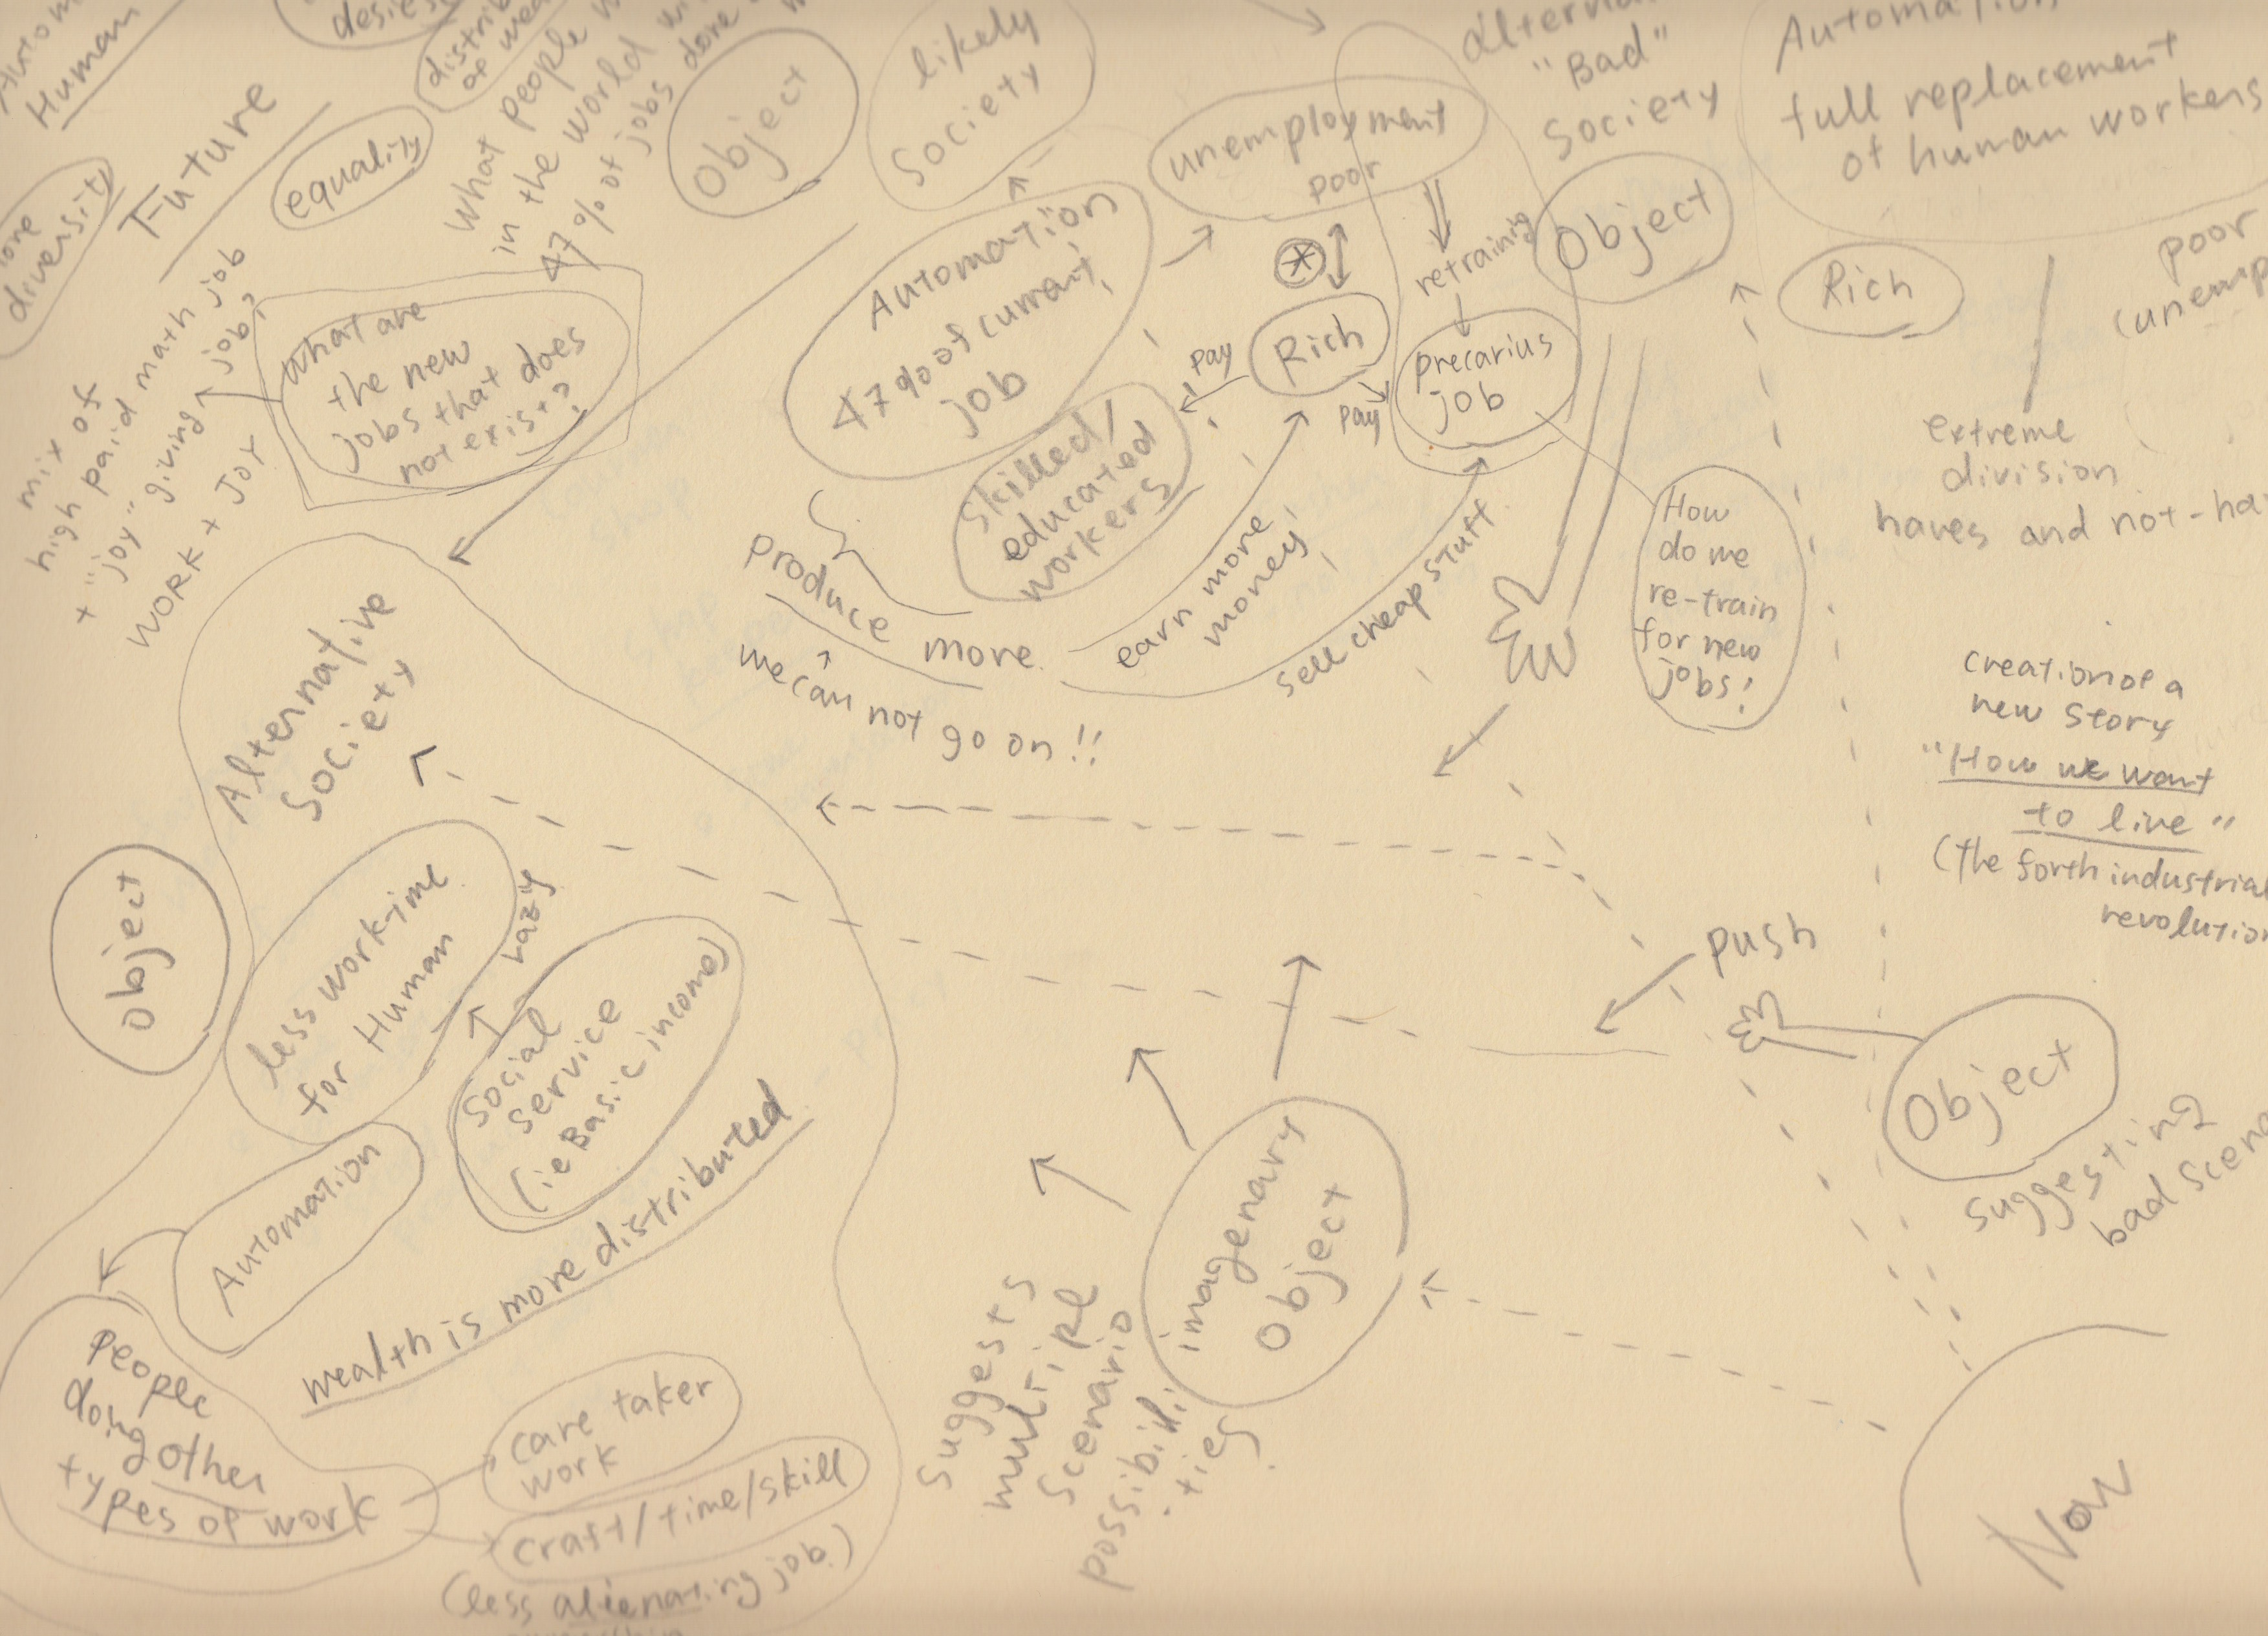 Human
desies
distrib
of wea
What people
in the world
47% of jobs done
Object
likely
Society
unemployment
poor
"Bad"
Society
Automation
full replacement
of human workers
Future
equality
diversity
Object
Rich
poor
(unemp
Automation
47% of current
job
retraining
Rich
pay
pay
precarius
job
What are
the new
jobs that does
not exist?
mix of
high paid math job
+ "joy" giving job?
WORK + JOY
Skilled/
educated
workers
produce more
we can not go on!!
earn more
money
sell cheap stuff
How
do we
re-train
for new
jobs!
extreme
division
haves and not-ha
creation of a
new story
"How we want
to live"
(the forth industrial
revolution
Alternative
Society
Object
less worktime
for Human
Lazy
Social
service
(ie Basic income)
Automation
wealth is more distributed
People
doing other
types of work
care taker
work
craft/time/skill
(less alienating job.)
push
Object
suggesting
bad scena
imagenary
Object
suggests
multipl
scenario
possibili
ties
Now